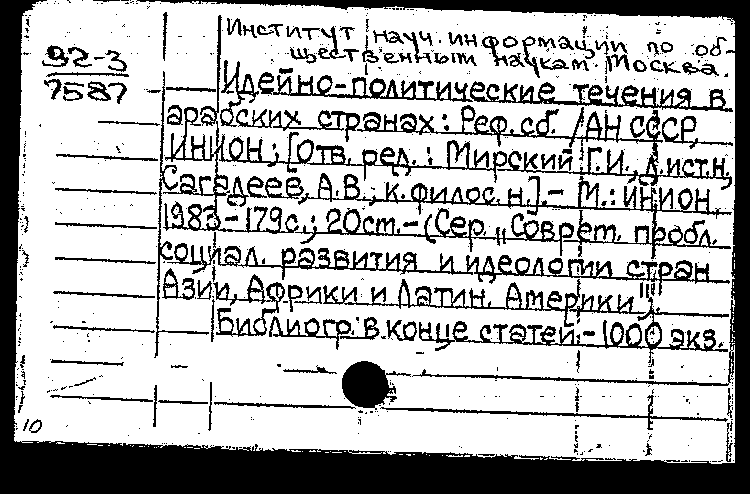 92-3
7587
Институт науч. информации по об-
щественным наукам. Москва.
Идейно-политические течения в
арабских странах: Реф. сб. / АН СССР,
ИНИОН; [Отв. ред.: Мирский Г.И., д.ист.н.,
Сагадеев, А.В.; к.филос.н.].- М.: ИНИОН,
1983-179с.; 20ст.-(Сер. „Соврет. пробл.
социал. развития и идеологии стран
Азии, Африки и Латин. Америки").
Библиогр: в конце статей.-1000 экз.
10